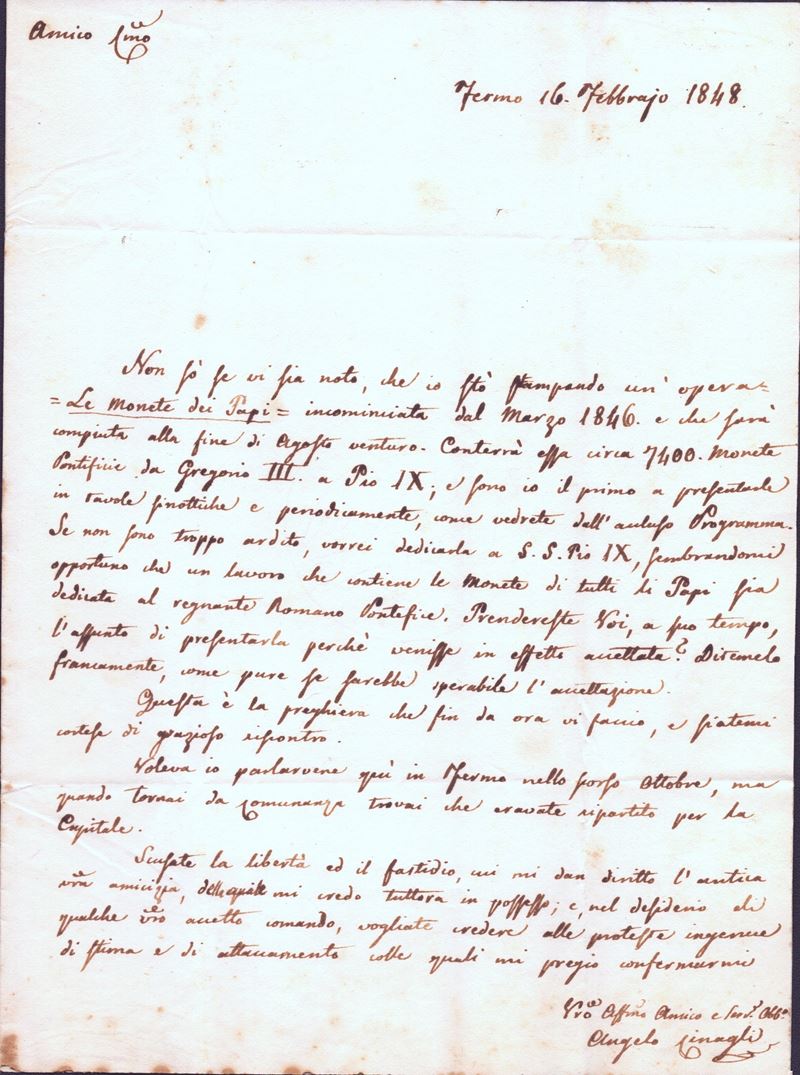 Amico Cmo
Fermo 16. Febbrajo 1848.
Non sò se vi sia noto, che io stò stampando un' opera =
= Le Monete dei Papi = incominciata dal Marzo 1846. e che sarà
compiuta alla fine di Agosto venturo. Conterrà essa circa 7400. Monete
Pontificie da Gregorio III. a Pio IX, e sono io il primo a presentarle
in tavole sinottiche e periodicamente, come vedrete dall' accluso Programma.
Se non sono troppo ardito, vorrei dedicarla a S. S. Pio IX, sembrandomi
opportuno che un lavoro che contiene le Monete di tutti li Papi sia
dedicata al regnante Romano Pontefice. Prendereste Voi, a suo tempo,
l' assunto di presentarla perchè venisse in effetto accettata? Ditemelo
francamente, come pure se sarebbe sperabile l' accettazione.
Questa è la preghiera che fin da ora vi faccio, e siatemi
cortese di grazioso riscontro.
Voleva io parlarvene quì in Fermo nello scorso Ottobre, ma
quando tornai da Comunanza trovai che eravate ripartito per la
Capitale.
Scusate la libertà ed il fastidio, cui mi dan diritto l' antica
vra amicizia, della quale mi credo tuttora in possesso; e, nel desiderio di
qualche vro accetto comando, vogliate credere alle proteste ingenue
di stima e di attaccamento colle quali mi pregio confermarmi
Vro Affmo Amico e Servr Obbo
Angelo Cinagli